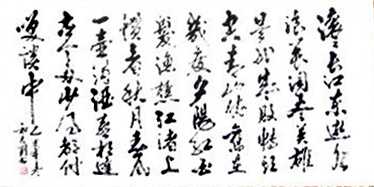 滚々长江东逝水
浪花淘尽英雄
是非成败转头
空青山依旧在
几度夕阳红白
发渔樵江渚上
惯看秋月春风
一壶浊酒喜相逢
古今多少事都付
笑谈中